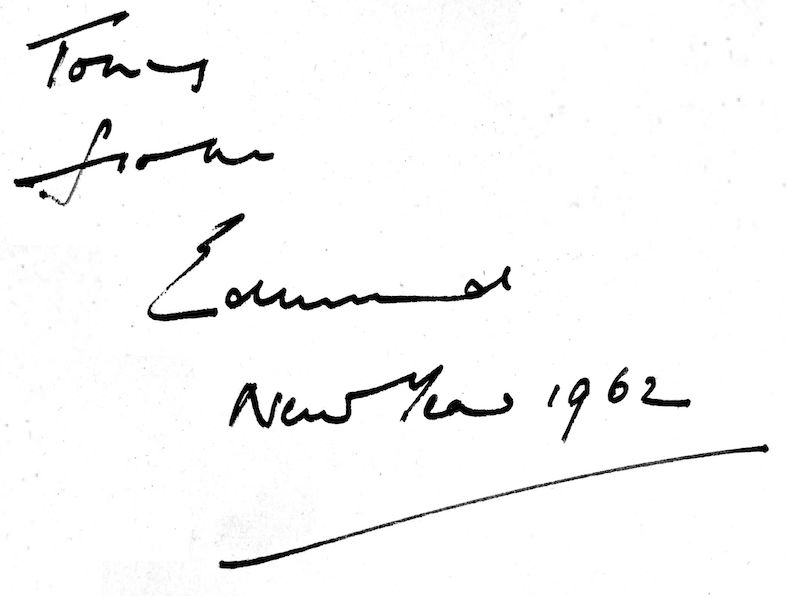 Tony
from
Edmund
New Year 1962